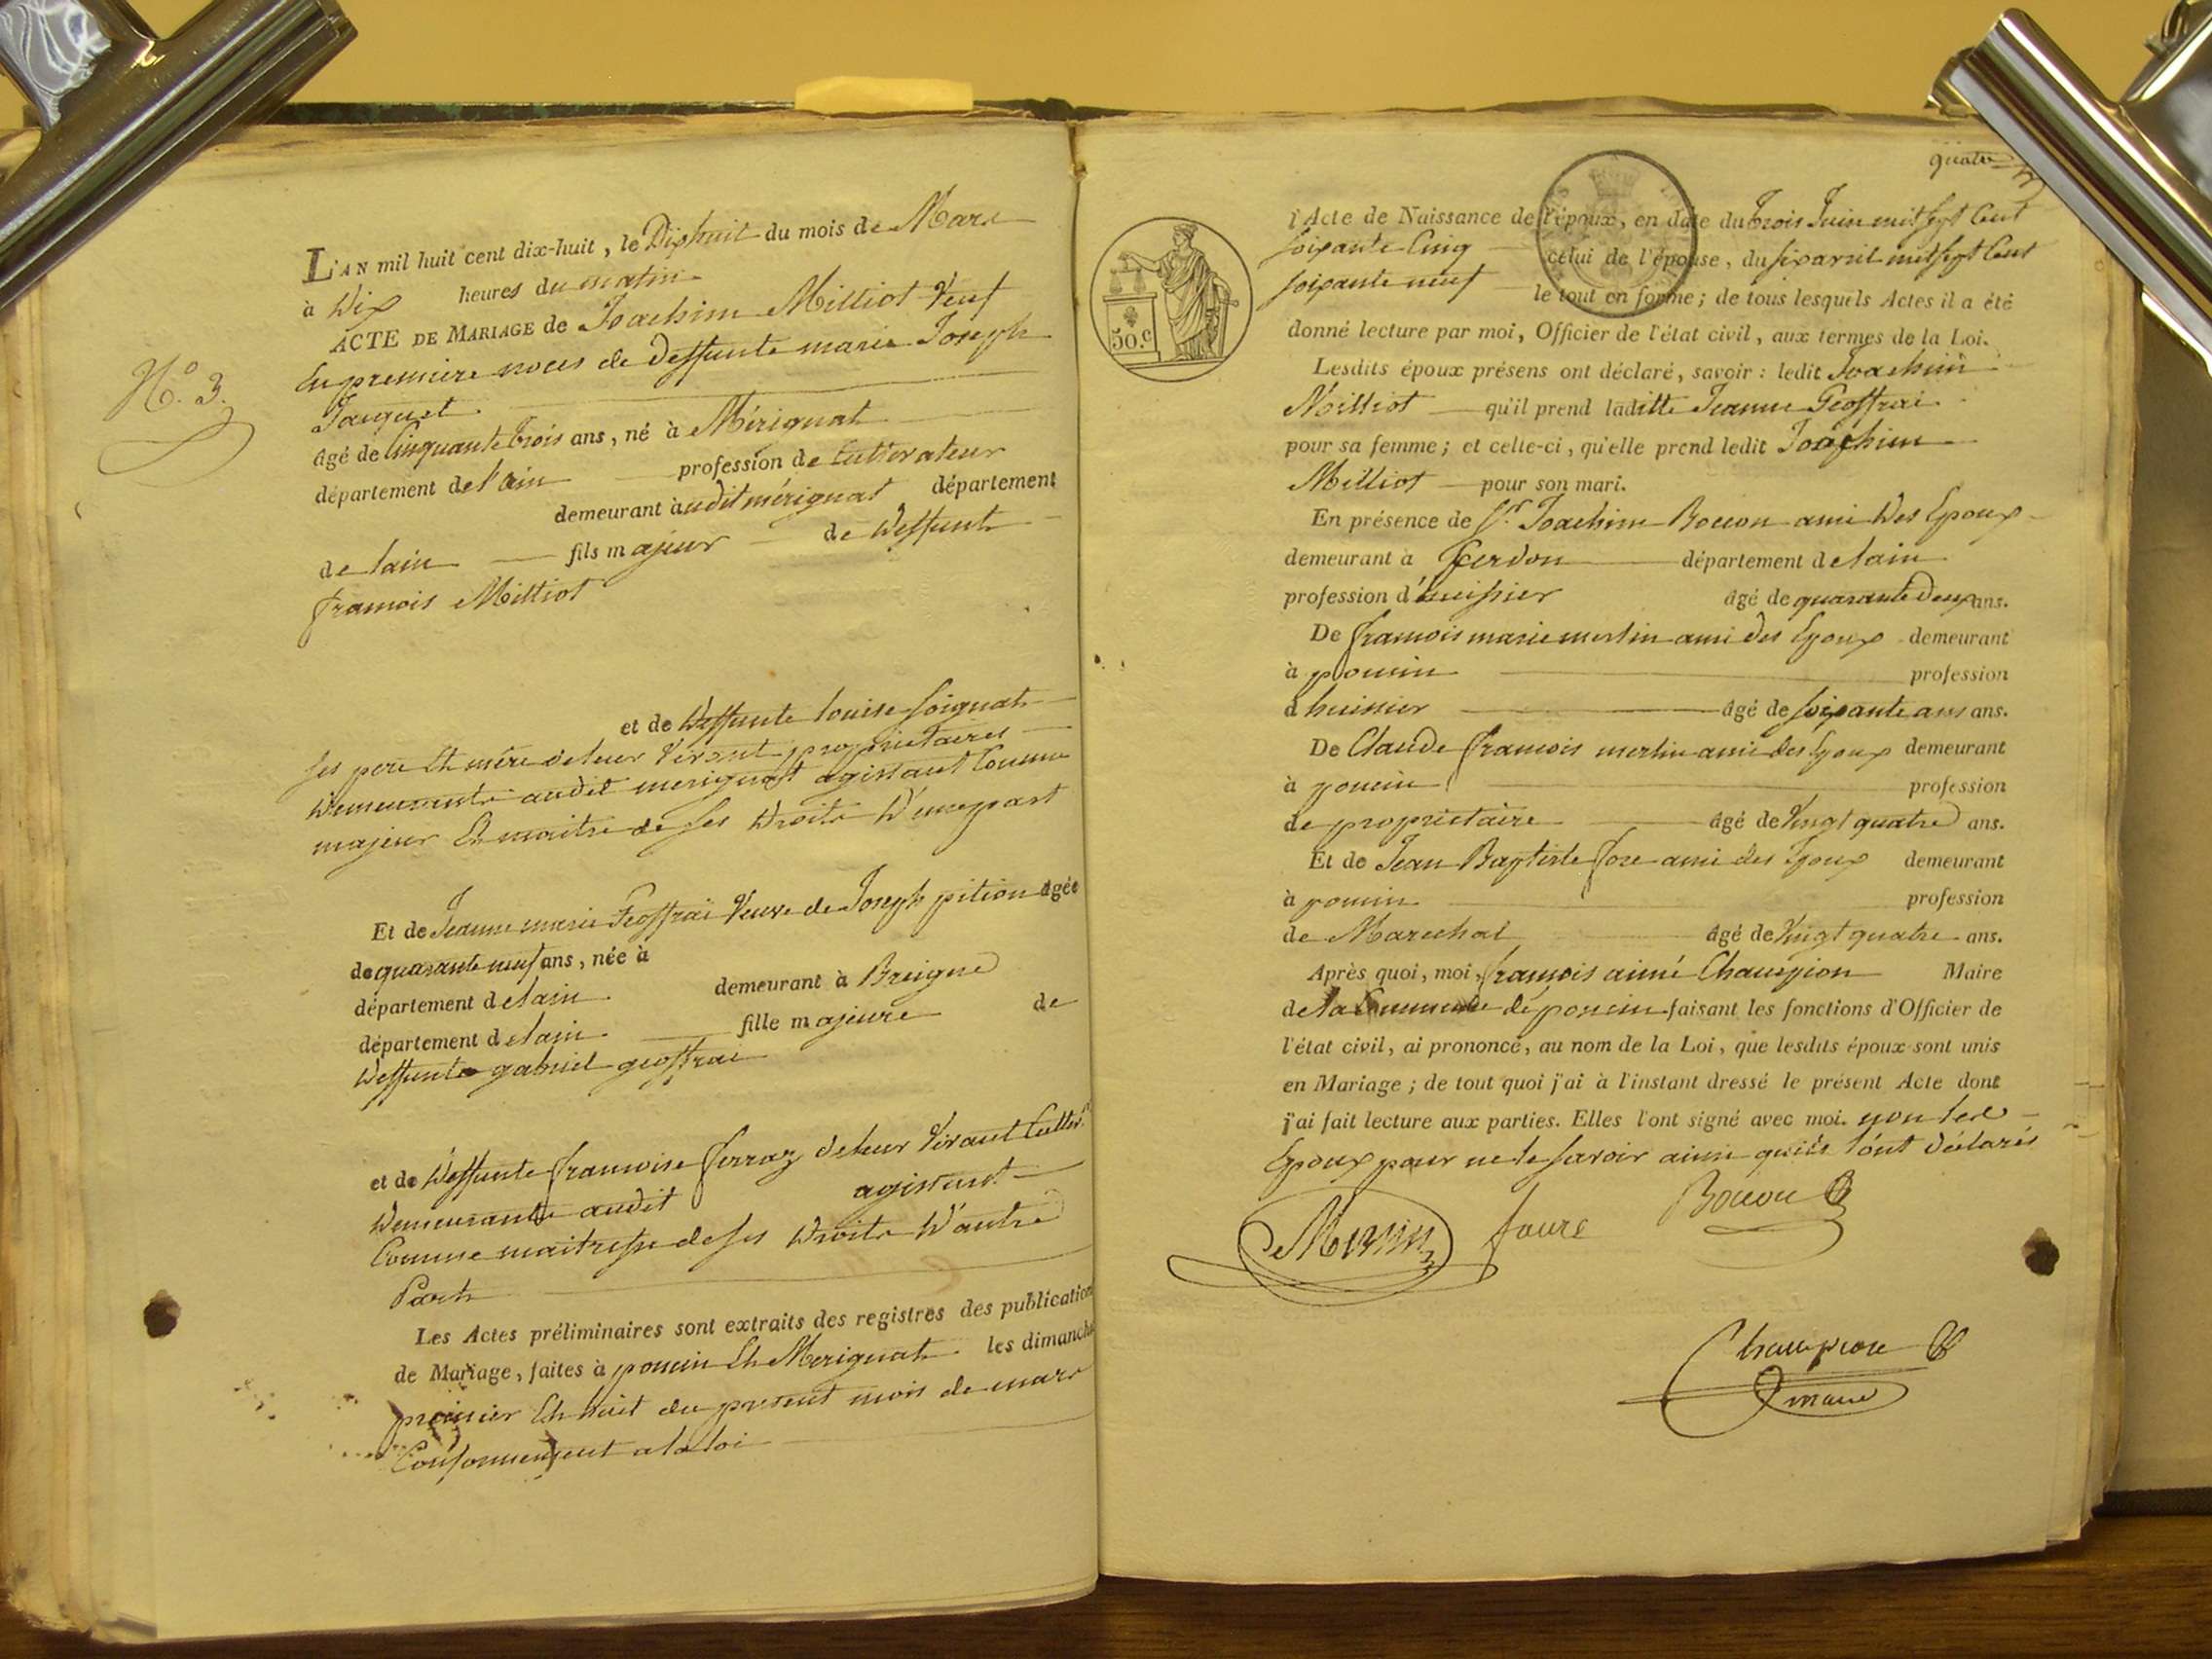 L'AN mil huit cent dix-huit, le Dixhuit du mois de Mars
à Dix heures du matin
ACTE DE MARIAGE de Joachim Milliot Veuf
En premiere noces de deffunte marie Joseph
Jauquet
N.º 3.
âgé de Cinquante trois ans, né à Mérignat
département de l'ain profession de Cultivateur
demeurant audit mérignat département
de lain fils majeur de deffunt
francois Milliot
et de deffunte louise Soignat
ses pere Et mère de leur Vivant proprietaires
Demeurants audit merignat agissant Comme
majeur Et maitre de ses Droits D'une part
Et de Jeanne marie Geoffrai Veuve de Joseph pition âgée
de quarante neuf ans, née à
département de lain demeurant à Breigne
département de lain fille majeure de
deffunt gabriel geoffrai
et de deffunte francoise ferraz de leur Vivant Cultiv.
Demeurants audit agissant
Comme maitresse de ses Droits D'autre
Part
Les Actes préliminaires sont extraits des registres des publication
de Mariage, faites à poncin Et Merignat les dimanche
premier Et huit du present mois de mars
Conformement a la loi
quatre
l'Acte de Naissance de l'époux, en date du trois Juin mil sept Cent
soixante Cinq celui de l'épouse, du six avril mil sept Cent
soixante neuf le tout en forme; de tous lesquels Actes il a été
50.c
donné lecture par moi, Officier de l'état civil, aux termes de la Loi.
Lesdits époux présens ont déclaré, savoir: ledit Joachim
Milliot qu'il prend laditte Jeanne Geoffrai
pour sa femme; et celle-ci, qu'elle prend ledit Joachim
Milliot pour son mari.
En présence de Sr. Joachim Boccon ami Des Epoux
demeurant à Cerdon département de lain
profession d'huissier âgé de quarante deux ans.
De francois marie merlin ami des Epoux demeurant
à poncin profession
d huissier âgé de soixante ans ans.
De Claude francois merlin ami des Epoux demeurant
à poncin profession
de proprietaire âgé de Vingt quatre ans.
Et de Jean Baptiste fore ami des Epoux demeurant
à poncin profession
de Marechal âgé de Vingt quatre ans.
Après quoi, moi, françois aimé Champion Maire
de la Commune de poncin faisant les fonctions d'Officier de
l'état civil, ai prononcé, au nom de la Loi, que lesdits époux sont unis
en Mariage; de tout quoi j'ai à l'instant dressé le présent Acte dont
j'ai fait lecture aux parties. Elles l'ont signé avec moi. non les
Epoux pour ne le savoir ainsi qu'ils l'ont déclarés
Merlin foure Boccon
Champion
maire